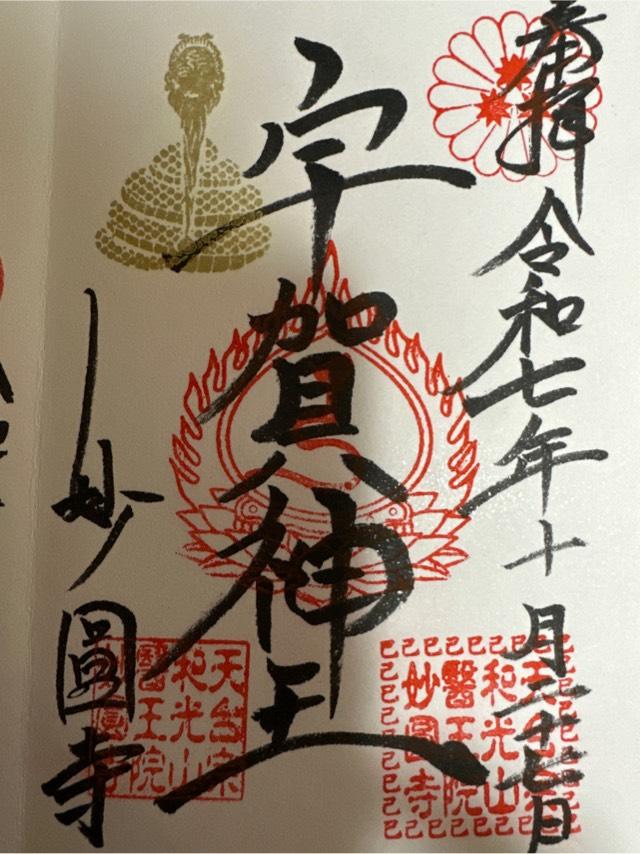 奉拝
令和七年十月二十七日
宇賀神王
妙圓寺
天台宗
和光山
醫王院
妙圓寺
天台宗
和光山
醫王院
妙圓寺